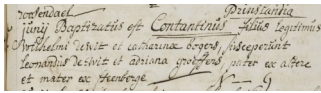 rosendael prinslandia
junij Baptizatus est Contantinus filius legitimus
Wilhelmi dewit et catharinæ bogers, susceperunt
leonardus dewit et adriana groffens, pater ex altere
et mater ex steenberge